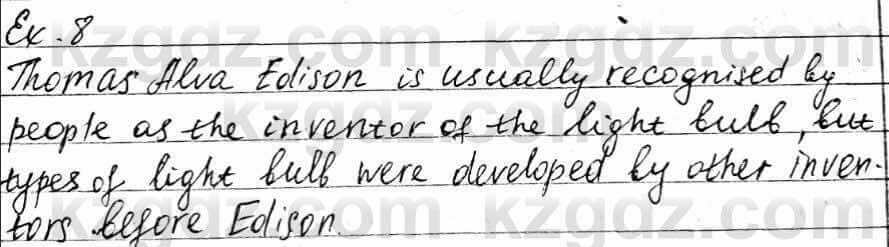 Ex. 8
Thomas Alva Edison is usually recognised by
people as the inventor of the light bulb, but
types of light bulb were developed by other inven-
tors before Edison.
kzgdz.com kzgdz.com
kzgdz.com
kzgdz.com kzgdz.com